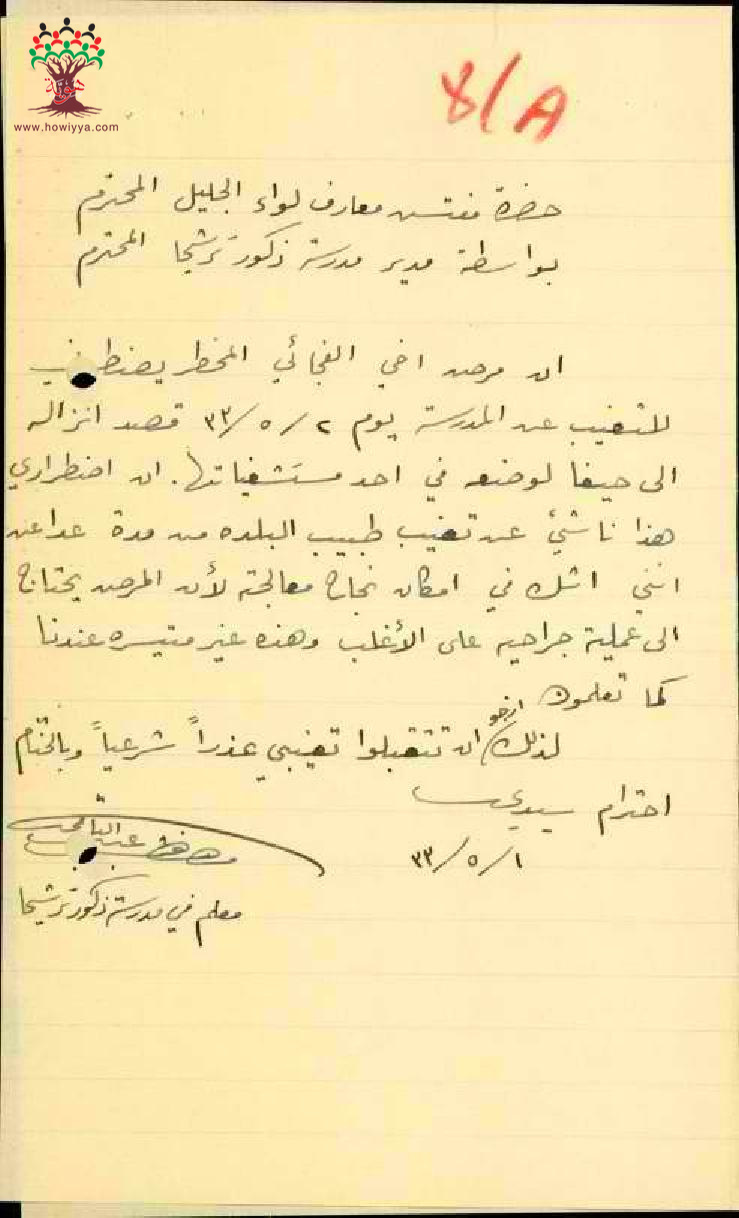 هوية
www.howiyya.com
8/A
حضرة مفتش معارف لواء الجليل المحترم
بواسطة مدير مدرسة ذكور ترشيحا المحترم
ان مرض اخي الفجائي الخطر يضطرني
للتغيب عن المدرسة يوم ٢/٥/٣٣ قصد انزاله
الى حيفا لوضعه في احد مستشفياتها. ان اضطراري
هذا ناشئ عن تغيب طبيب البلده من مدة عدا عن
انني اشك في امكان نجاح معالجته لأن المرض يحتاج
الى عملية جراحيه على الأغلب وهذه غير متيسره عندنا
كما تعلمون
لذلك ارجو ان تتقبلوا تغيبي عذراً شرعياً وبالختام
احترام سيدي
١/٥/٣٣
معلم في مدرسة ذكور ترشيحا